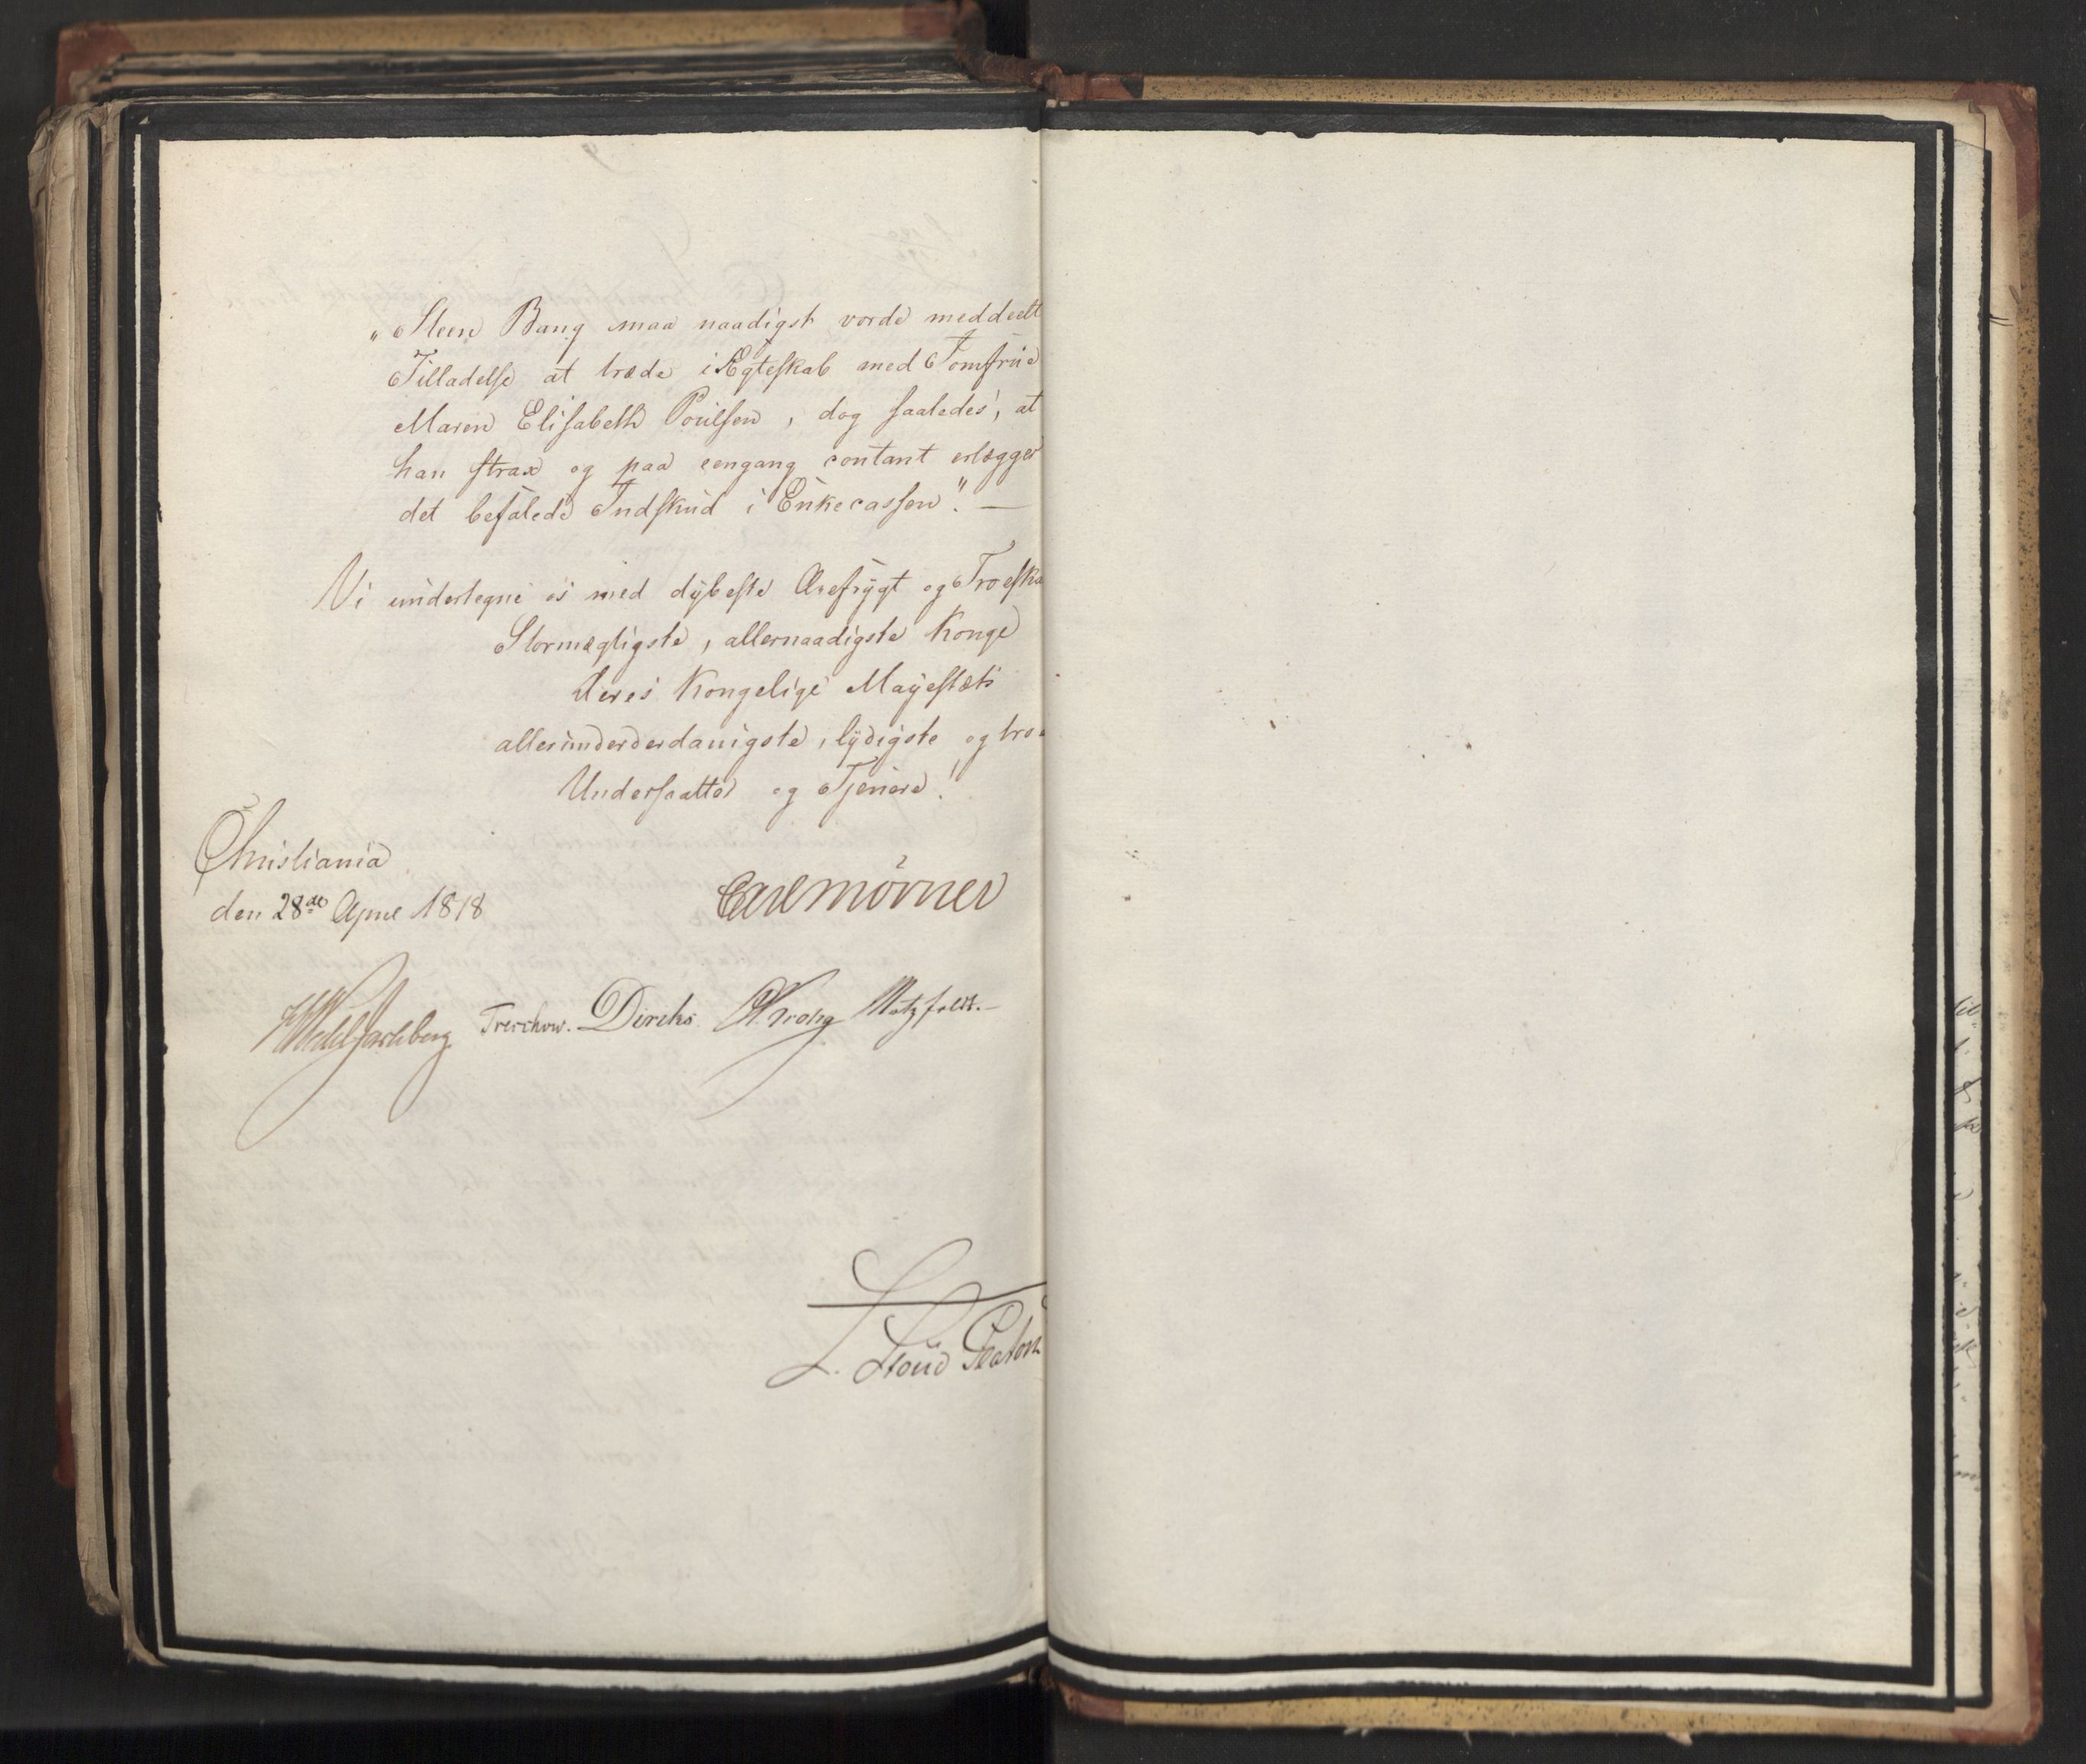 "Steen Bang maa naadigst vorde meddeelt
Tilladelse at træde i Ægteskab med Jomfrue
Maren Elisabeth Poulsen, dog saaledes, at
han strax og paa eengang contant erlægger
det befalede Indskud i Enkecassen". —
Vi undertegne os med dybeste Ærefrygt og Troeska
Stormægtigste, allernaadigste Konge
Deres Kongelige Mayestæts
allerunderderdanigste, lydigste og troe
Undersaatter og Tjenere!
Christiania
den 28de April 1818
Carl Mörner
HWedel Jarlsberg Treschow. Diriks. CKrohg Motzfeldt.
L. Stoud Platou